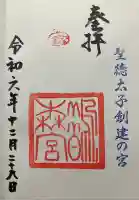 聖徳太子創建の宮
奉拝
鵲森宮
令和六年十二月二十六日